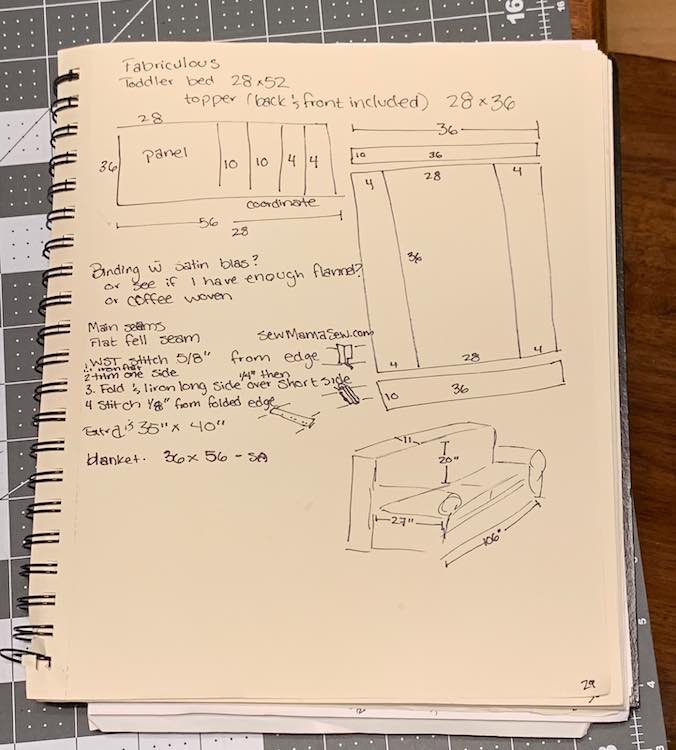 Fabriculous
Toddler bed 28x52
topper (back & front included) 28x36
28
36
panel
10 10 4 4
coordinate
56
28
36
10 36
4 28 4
36
4 28 4
10 36
Binding w satin bias?
or see if I have enough flannel?
or coffee woven
Main seams
Flat fell seam
sewMamaSew.com
1. WST stitch 5/8" from edge
iron flat
2 trim one side 1/4" then
3. Fold & iron long side over short side
4 Stitch 1/8" from folded edge
is 35" x 40"
blanket. 36x56 - SA
11
20"
27"
106"
29
16
5
4
3